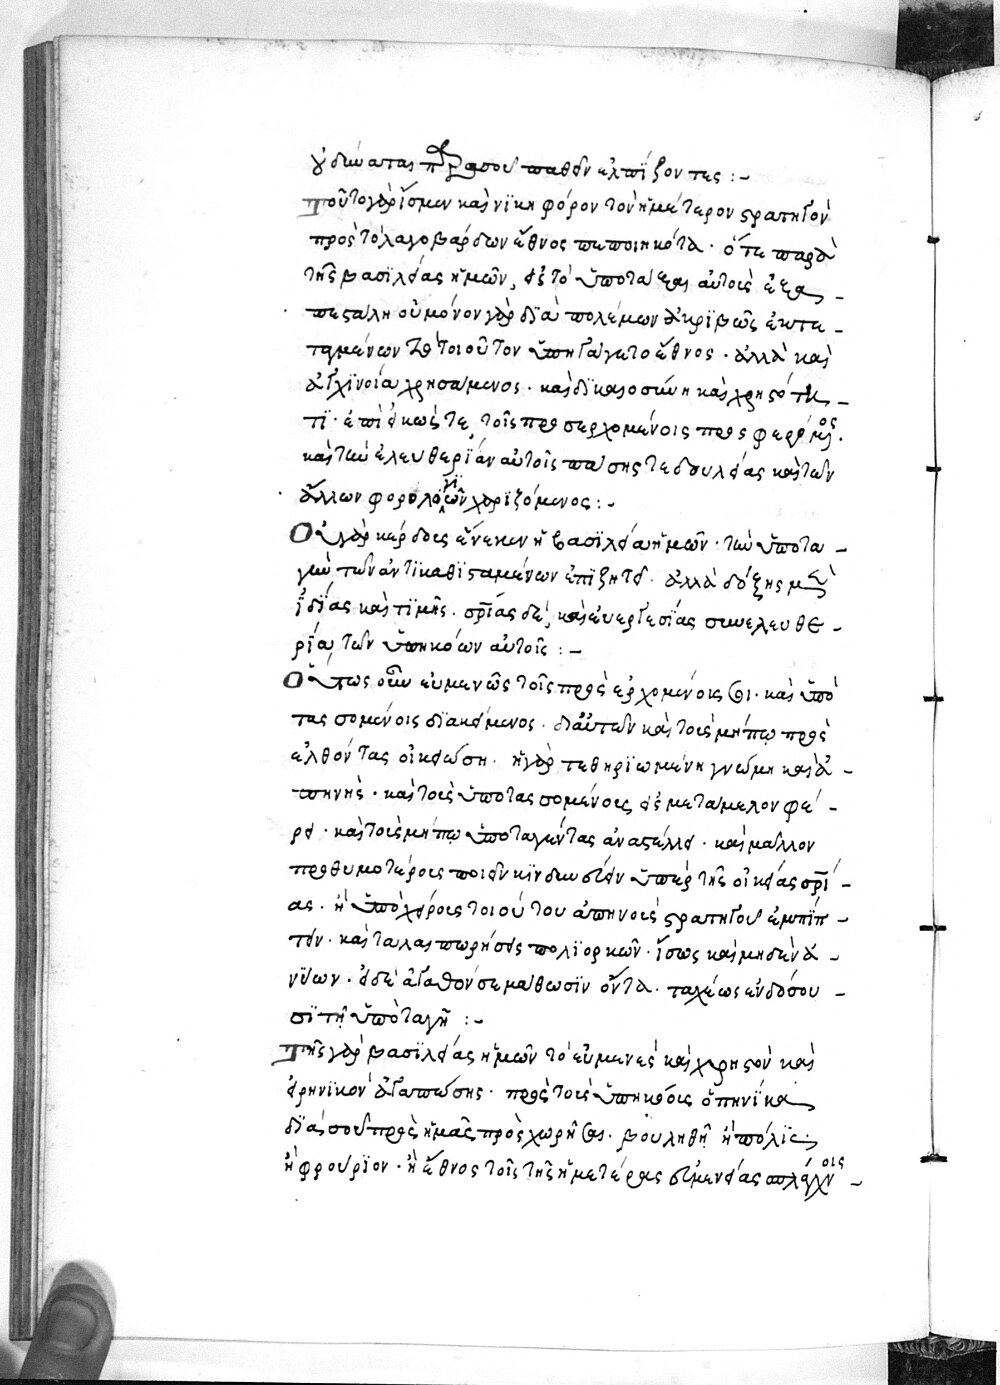 οὐδεμιᾶς παρὰ σοῦ παθεῖν ἐλπίζοντες :-
τοῦτο γὰρ ἴσμεν καὶ νικηφόρον τὸν ἡμέτερον στρατηγὸν
πρὸς τὸ λαγοβάρδων ἔθνος πεποιηκότα · ὅτε παρὰ
τῆς βασιλείας ἡμῶν, εἰς τὸ ὑποτάξαι αὐτοὺς ἐξα-
πεστάλη οὐ μόνον γὰρ διὰ πολέμων ἀκριβῶς ἐκτε-
ταγμένων τὸ τοιοῦτον ὑπηγάγετο ἔθνος · ἀλλὰ καὶ
ἀγχινοία χρησάμενος · καὶ δικαιοσύνη καὶ χρηστότη-
τι · ἐπιεικῶς τε τοῖς προσερχομένοις προσφερόμενος ·
καὶ τὴν ἐλευθερίαν αὐτοῖς πάσης τε δουλείας καὶ τῶν
ἄλλων φορολογιῶν χαριζόμενος :-
Οὐ γὰρ κέρδους ἕνεκεν ἡ βασιλεία ἡμῶν · τὴν ὑποτα-
γὴν τῶν ἀντικαθισταμένων ἐπιζητεῖ · ἀλλὰ δόξης μὲν
ἰδίας καὶ τιμῆς · σρίας δὲ, καὶ εὐεργεσίας σὺν ἐλευθε-
ρία, τῶν ὑπηκόων αὐτοῖς :-
Ὅπως οὖν εὐμενῶς τοῖς προσερχομένοις σοι · καὶ ὑπο
τασσομένοις διακείμενος · δι' αὐτῶν καὶ τοὺς μήπω προσ
ελθόντας οἰκειώση · ἡ γὰρ τεθηριωμένη γνώμη καὶ ἀ-
πηνὴς · καὶ τοὺς ὑποτασσομένους εἰς μετάμελον φέ-
ρει · καὶ τοὺς μήπω ὑποταγέντας ἀναστέλλει · καὶ μᾶλλον
προθυμοτέρους ποιεῖν κινδυνεύειν ὑπὲρ τῆς οἰκείας σρί-
ας · ἢ ὑποχείρους τοιούτου ἀπηνοῦς στρατηγοῦ ἐμπίπ-
τειν · καὶ ταλαιπωρήσεις πολιορκῶν · ἴσως καὶ μηδὲν ἀ-
νύων · εἰ δὲ ἀγαθόν σε μάθωσιν ὄντα · ταχέως ἐνδώσου-
σι τῇ ὑποταγῇ :-
τῆς γὰρ βασιλείας ἡμῶν τὸ εὐμενὲς καὶ χρηστὸν καὶ
εἰρηνικὸν ἀγαπώσης · πρὸς τοὺς ὑπηκόους ὁπηνίκα
διὰ σοῦ πρὸς ἡμᾶς προσχωρῆσαι · βουληθῇ ἢ πόλις ·
ἢ φρούριον · ἢ ἔθνος τοῖς τῆς ἡμετέρας εὐμενείας σπλάγχνοις -